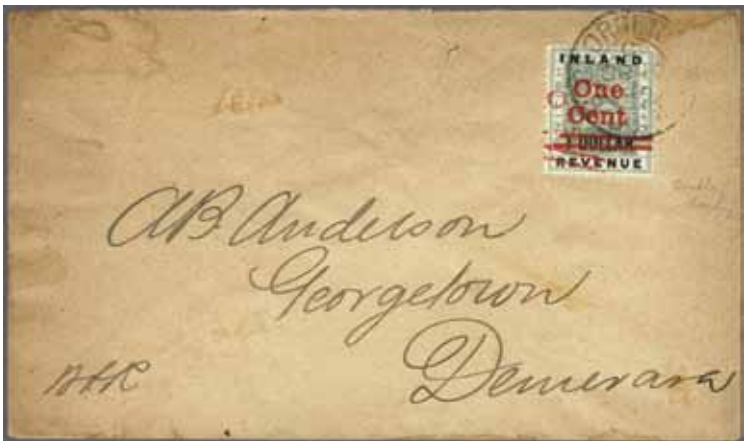 INLAND
One
Cent
1 DOLLAR
REVENUE
AB Anderson
Georgetown
Demerara